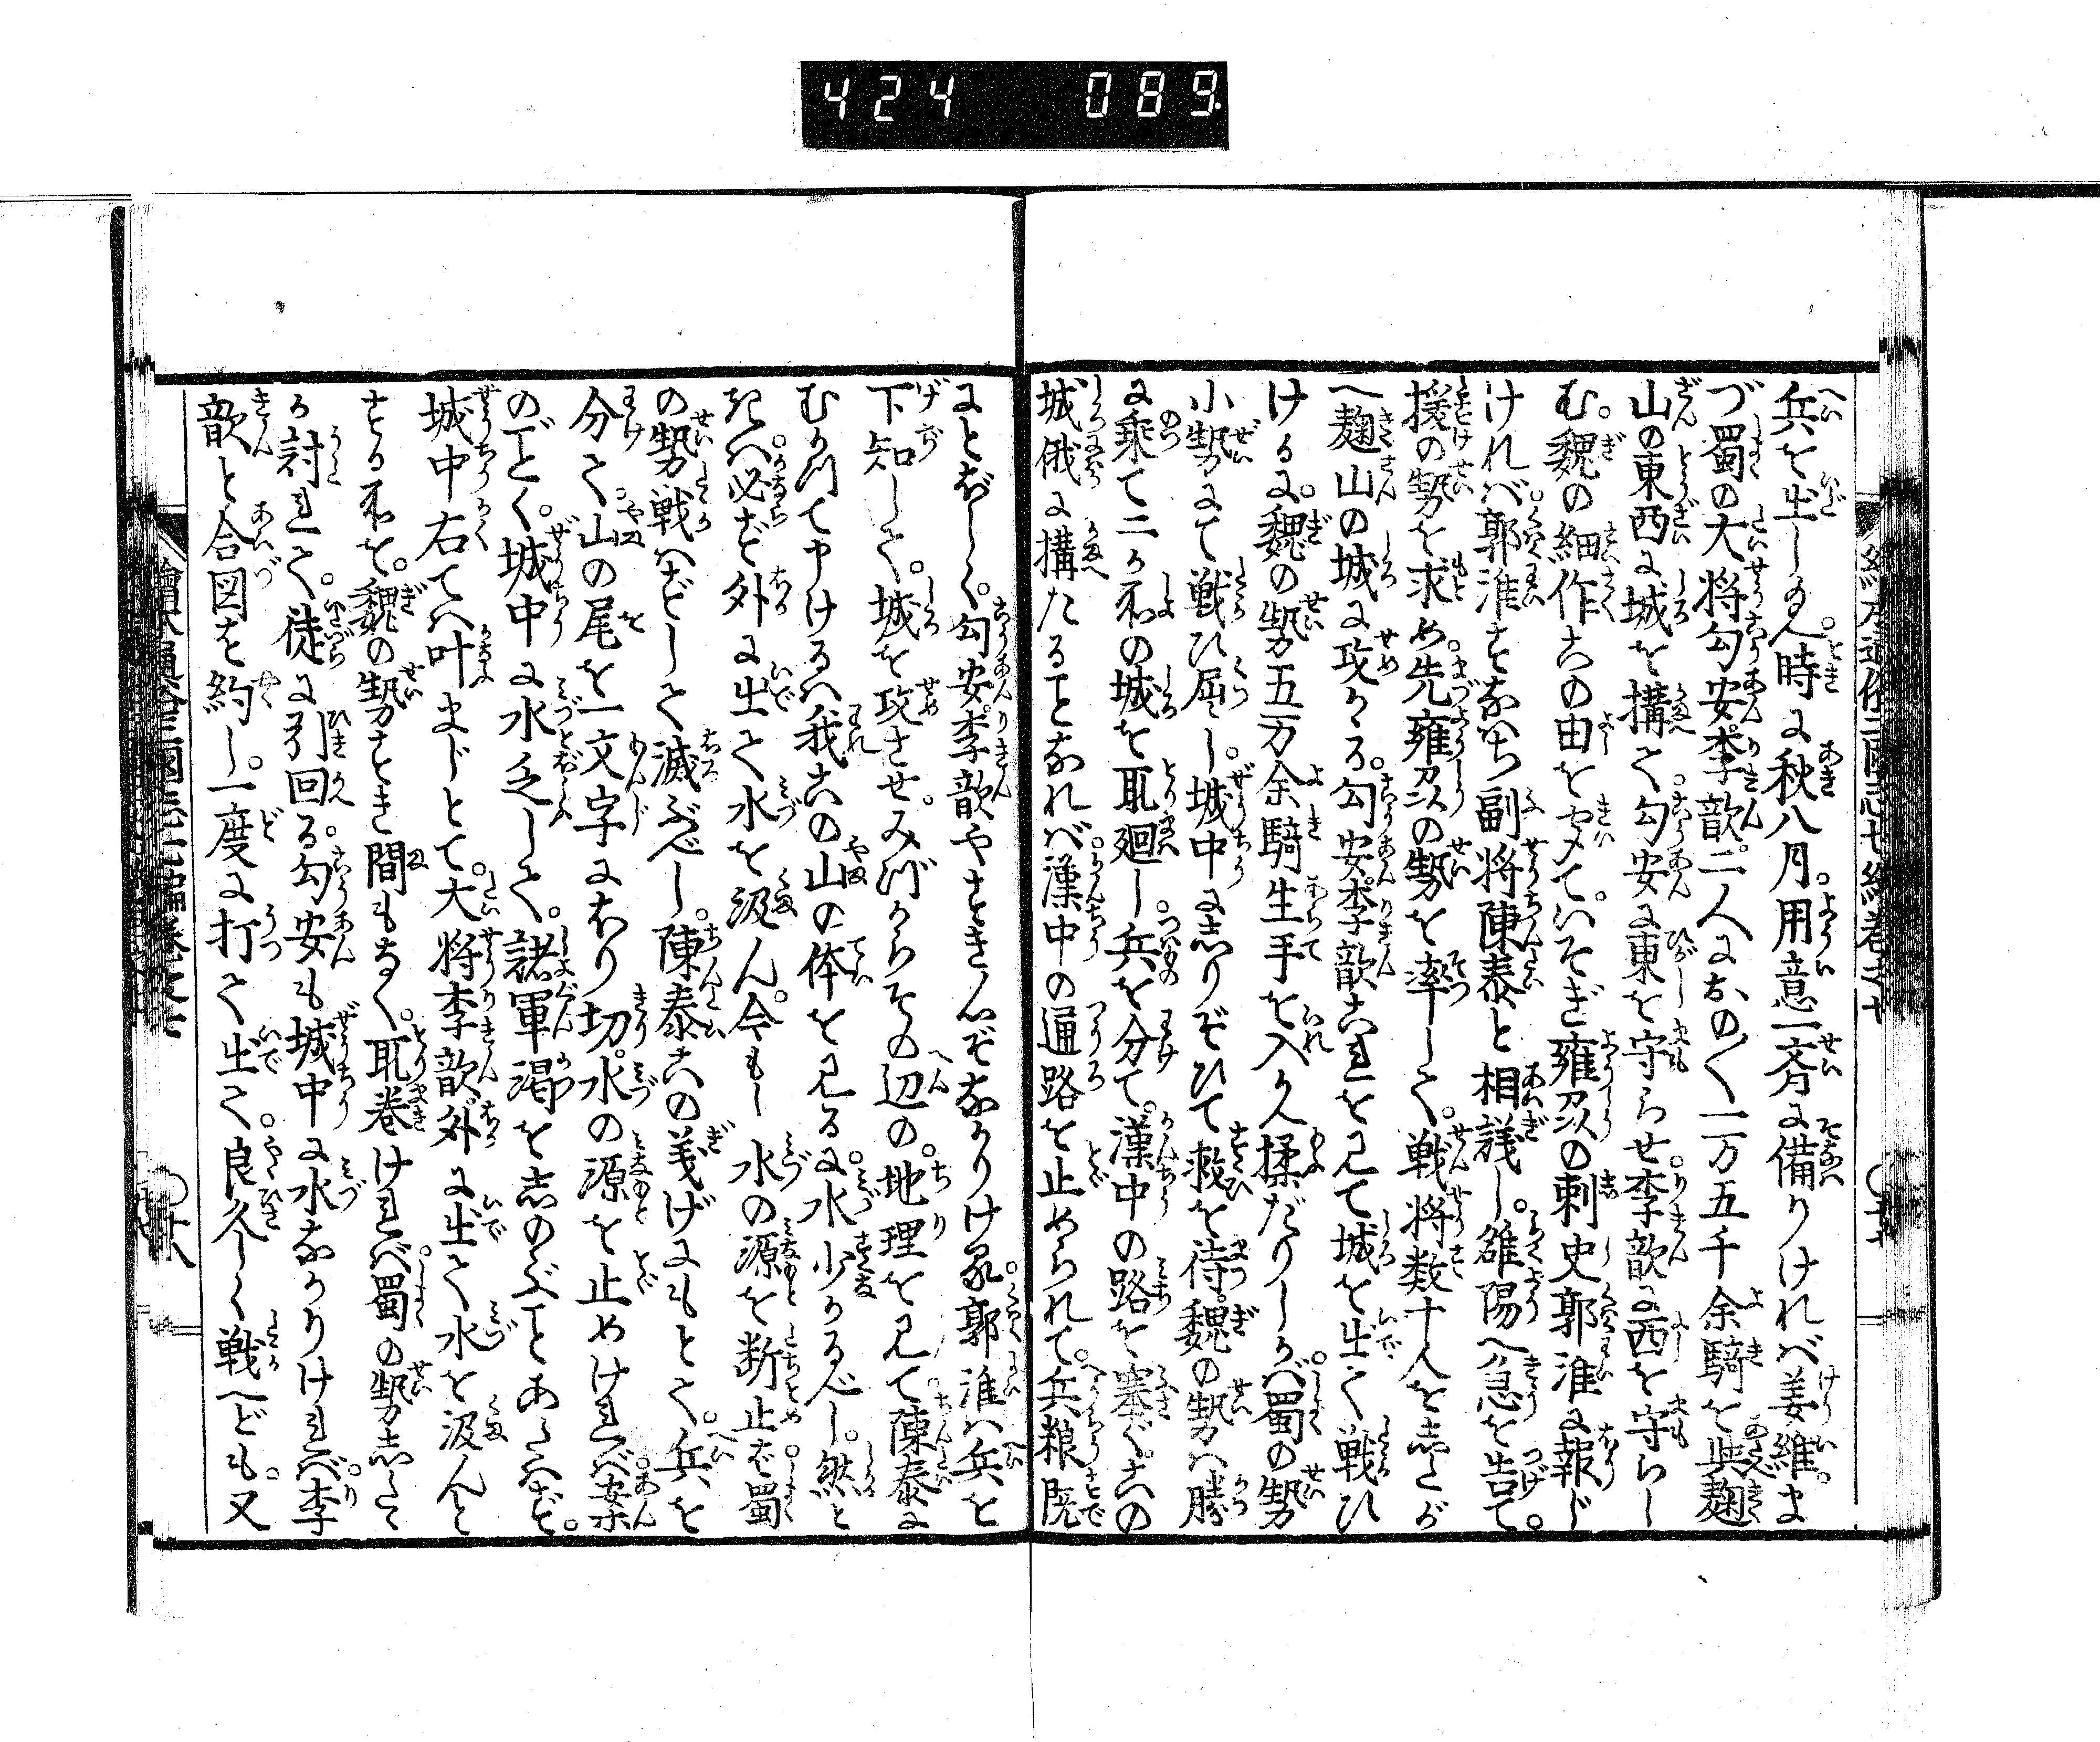 424 089
兵を出しける。時に秋八月。用意一斉に備りければ姜維。ま
づ蜀の大将勾安。李歆。二人におの〳〵一万五千余騎を与麹
山の東西に城を構て。勾安に東を守らせ。李歆に西を守らし
む。魏の細作この由をきいて。いそぎ雍州の刺史郭淮に報じ
ければ。郭淮すなはち副将陳泰と相議し。雒陽へ急を告て。
援の勢を求め。先雍州の勢を率して。戦将数十人をしたが
へ麹山の城に攻くる。勾安李歆これを見て城を出て戦ひ
けるに。魏の勢五万余騎生手を入かへ揉だりしかば。蜀の勢
小勢にて戦ひ屈し。城中にしりぞひて救を待。魏の勢は勝
に乗て二か所の城を取廻し。兵を分て。漢中の路を塞ぐ。この
城俄に構たることなれば。漢中の通路を止められて。兵粮既
にとぼしく。勾安李歆やすき心ぞなかりける。郭淮は兵を
下知して。城を攻させ。みづからその辺の。地理を見て。陳泰に
むかつて申けるは。我この山の体を見るに。水少かるべし。然と
きは。必ず外に出て水を汲ん。今もし水の源を断止ば。蜀
の勢戦はずして滅ぶべし。陳泰この義げにもとて。兵を
分て。山の尾を一文字にほり切。水の源を止めければ。案
のごとく。城中に水乏して。諸軍渇をしのぶことあたはず。
城中右ては叶まじとて。大将李歆。外に出て水を汲んと
する所を。魏の勢すき間もなく。取巻ければ。蜀の勢したゝ
か討れて。徒に引回る。勾安も城中に水なかりければ。李
歆と合図を約し。一度に打て出て。良久しく戦へども。又
繪本通俗三國志七編巻之七
十八